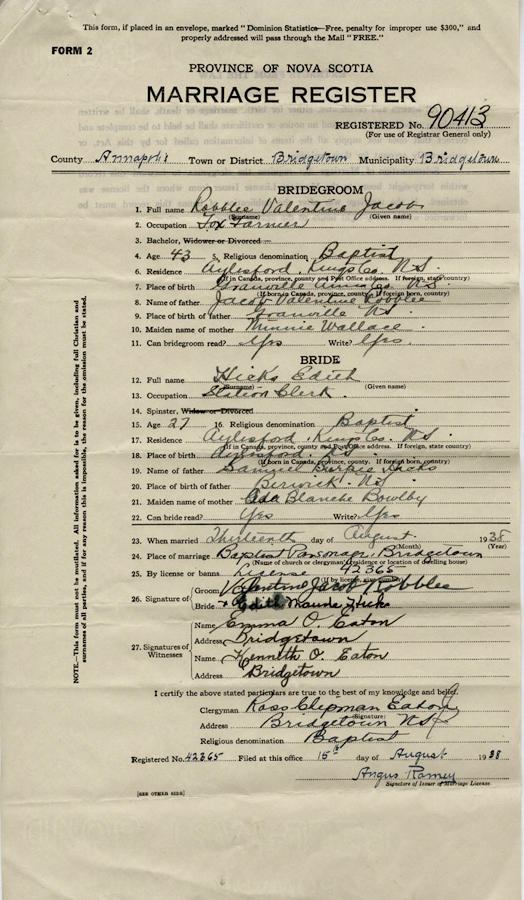 This form, if placed in an envelope, marked "Dominion Statistics—Free, penalty for improper use $300," and
properly addressed will pass through the Mail "FREE."
FORM 2
PROVINCE OF NOVA SCOTIA
MARRIAGE REGISTER
REGISTERED No. 90413
(For use of Registrar General only)
County Annapolis Town or District Bridgetown Municipality Bridgetown
BRIDEGROOM
1. Full name Robblee Valentine Jacob
(Surname) (Given name)
2. Occupation Fox Farmer
3. Bachelor, Widower or Divorced
4. Age 43 5. Religious denomination Baptist
6. Residence Aylesford, Kings Co. N.S.
(If in Canada, province, county and Post Office address. If foreign, state country)
7. Place of birth Granville Anna Co. N.S.
(If born in Canada, province, county. If foreign born, country)
8. Name of father Jacob Valentine Robblee
9. Place of birth of father Granville N.S.
10. Maiden name of mother Minnie Wallace
11. Can bridegroom read? Yes Write? Yes.
BRIDE
12. Full name Hicks Edith
(Surname) (Given name)
13. Occupation Station Clerk.
14. Spinster, Widow or Divorced
15. Age 27 16. Religious denomination Baptist
17. Residence Aylesford, Kings Co. N.S.
(If in Canada, province, county and Post Office address. If foreign, state country)
18. Place of birth Aylesford. N.S.
(If born in Canada, province, county. If foreign born, country)
19. Name of father Samuel Hicks
20. Place of birth of father Berwick. N.S.
21. Maiden name of mother Ada Blanche Bowlby
22. Can bride read? Yes Write? Yes
23. When married Thirteenth day of August 1938
(Month) (Year)
24. Place of marriage Baptist Parsonage, Bridgetown
(Name of church or clergyman, residence or location of dwelling house)
25. By license or banns License 42365
(If by license, give number)
26. Signature of
Groom Valentine Jacob Robblee
Bride Edith Maude Hicks
27. Signatures of
Witnesses
Name Emma O. Eaton
Address Bridgetown
Name Kenneth O. Eaton
Address Bridgetown
I certify the above stated particulars are true to the best of my knowledge and belief.
Clergyman Ross Chipman Eaton
(Signature)
Address Bridgetown N.S.
Religious denomination Baptist
Registered No. 42365 Filed at this office 15th day of August 1938
Angus Ramey
Signature of Issuer of Marriage License.
[SEE OTHER SIDE]
NOTE.—This form must not be mutilated. All information asked for is to be given, including full Christian and
surnames of all parties, and if for any reason this is impossible, the reason for the omission must be stated.